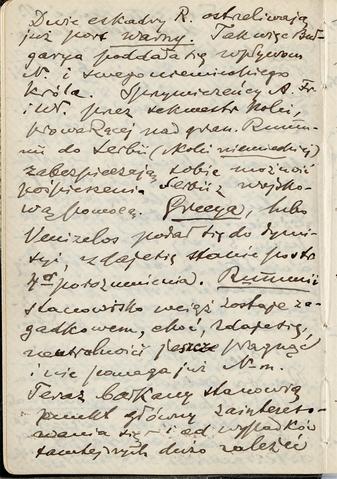 Dwie eskadry R. ostrzeliwają
już port Warny. Tak więc Buł-
garya poddała się wpływom
N. i swego niemieckiego
króla. Sprzymierzeńcy A. Fr.
i Wł. przez sekwestr kolei,
prowadzącej nad gran. Rumu-
nii do Serbii (kolei niemieckiej)
zabezpieczają sobie możność
pośpieszenia Serbii z wojsko-
wą pomocą. Grecya, lubo
Venizelos podał się do dymi-
syi, zdaje się stanie po str.
4or porozumienia. Rumunii
stanowisko wciąż zostaje za-
gadkowem, choć, zdaje się,
neutralności pragnąć
i nie pomaga już N-m.
Teraz bałkany stanowią
punkt główny zaintereso-
wania się i od wypadków
tamtejszych dużo zależeć